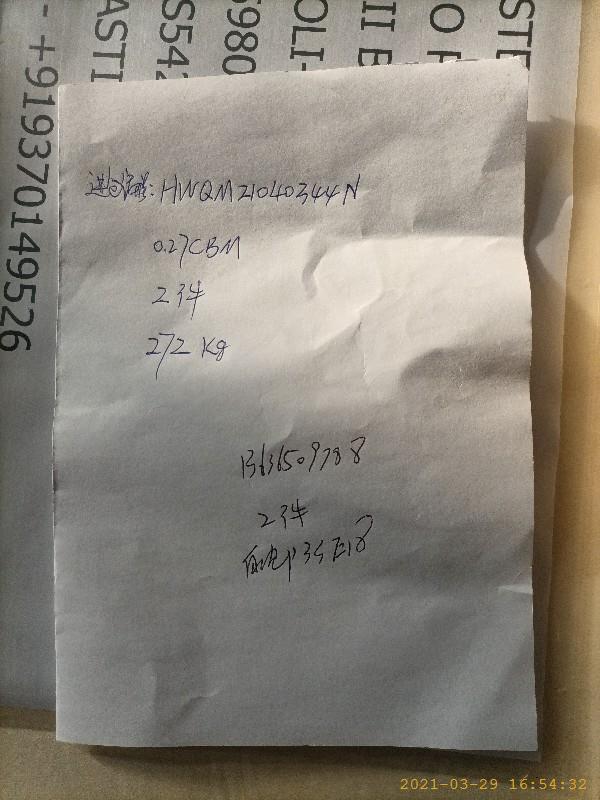 STE
O F
II E
OLI-
6980
S542
ASTI
- +919370149526
进仓编号: HWQM21040344N
0.27CBM
2件
272 Kg
13636509788
2件
2021-03-29 16:54:32